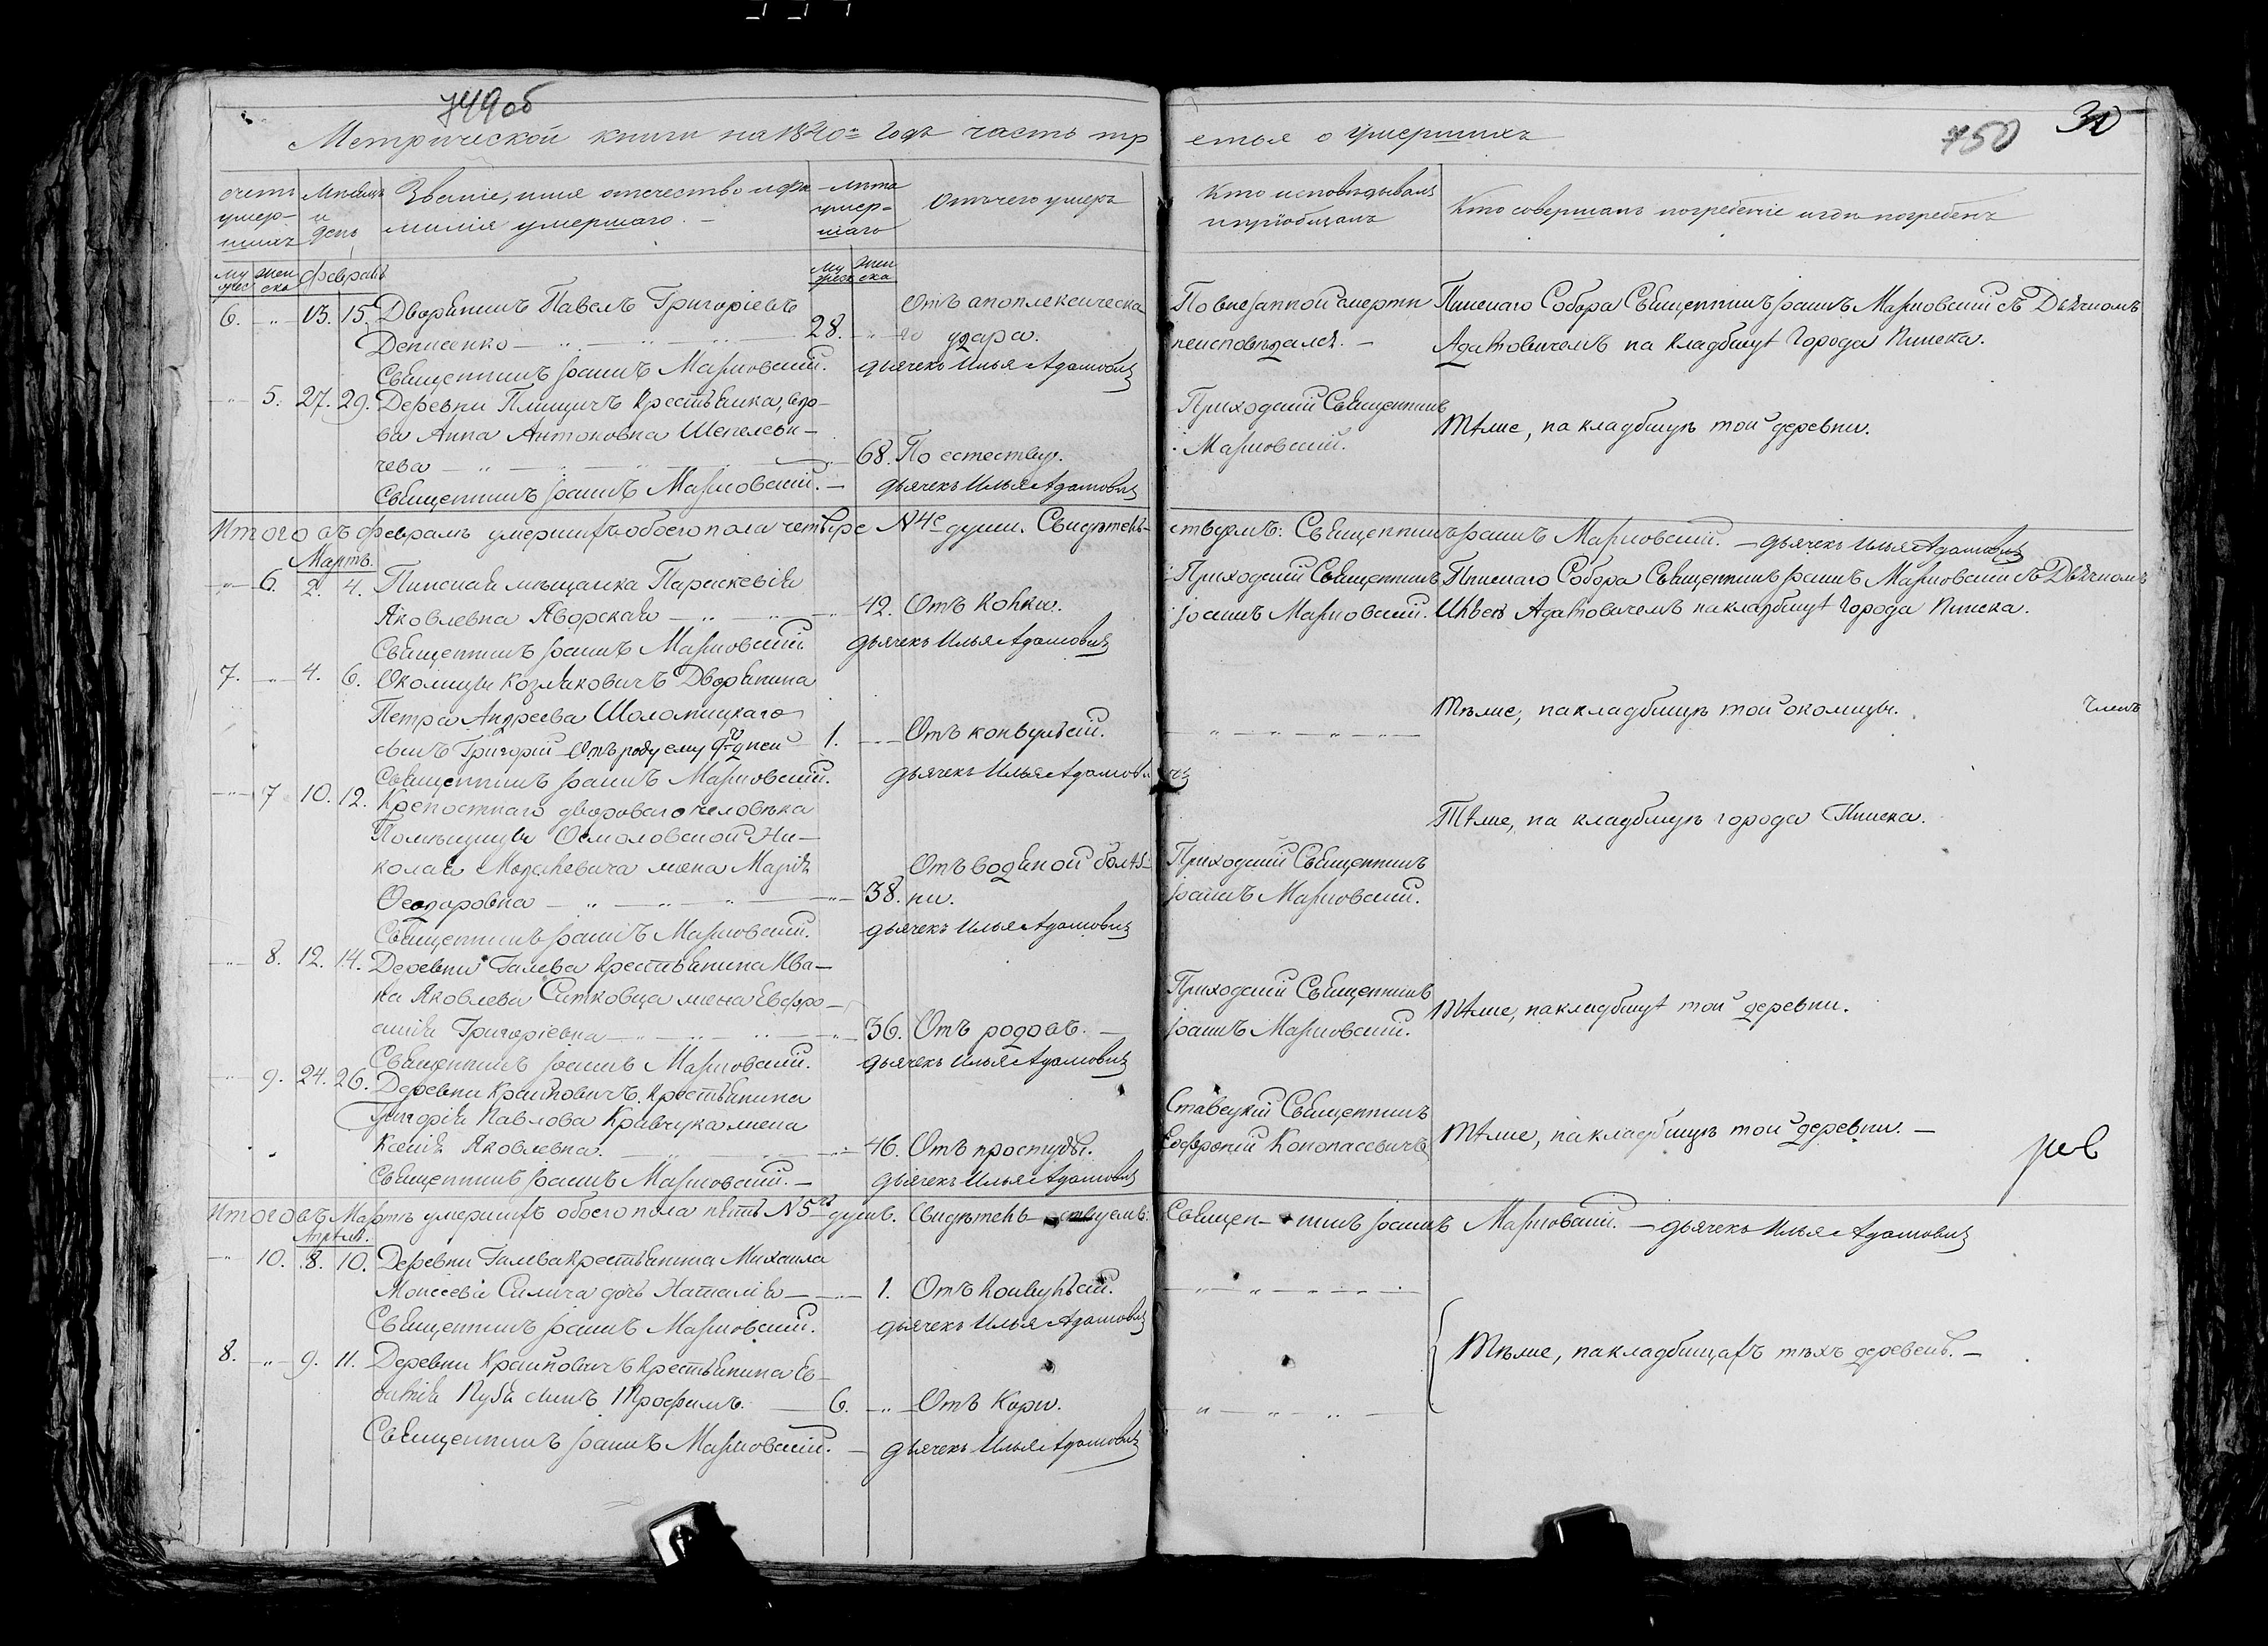 749 об
750
30
Метрической книги на 1840й годъ часть тр етья о умершихъ
счетъ умер- шихъ
Мѣсяцъ и день
Званіе, имя отечество и фа- милія умершаго. -
лѣта умер- шаго
Отъ чего умеръ
Кто исповѣдывалъ и пріобщалъ
Кто совершалъ погребеніе и гдѣ погребенъ
му жес
жен ска
Февраль
му жеск
жен ска
6. 13. 15. Дворянинъ Павелъ Григоріевъ
Денисенко 28.
Отъ апоплексическа
го удара.
По внезапной смерти
неисповѣдался. -
Пинскаго Собора Священникъ Іоаннъ Марковскій съ Дьячкомъ
Адамовичемъ на кладбищѣ города Пинска.
Священникъ Іоаннъ Марковскій. дьячекъ Илья Адамовичъ
5. 27. 29. Деревни Плищичъ крестьянка, вдо-
ва Анна Антоновна Шепелеви-
чева 68. По естеству.
Приходскій Священникъ
Марковскій.
Тѣмже, на кладбищѣ той деревни.
Священникъ Іоаннъ Марковскій. - дьячекъ Илья Адамовичъ
Итого въ Февралѣ умершихъ обоего пола четыре №4е души. Свидѣтель- ствуемъ: Священникъ Іоаннъ Марковскій. - дьячекъ Илья Адамовичъ
Мартъ.
6. 2. 4. Пинская мѣщанка Параскевія
Яковлевна Яворская 42. Отъ Кольки.
Приходскій Священникъ
Іоаннъ Марковскій.
Пинскаго Собора Священникъ Іоаннъ Марковскій съ Дьячкомъ
Ильею Адамовичемъ на кладбищѣ города Пинска.
Священникъ Іоаннъ Марковскій дьячекъ Илья Адамовичъ
7. 4. 6. Околицы Козляковичъ Дворянина
Петра Андреева Шоломицкаго
сынъ Григорій отъ роду ему 9ть дней 1. Отъ конвульсій.
Тѣмже, на кладбищѣ той околицы.
Священникъ Іоаннъ Марковскій. дьячекъ Илья Адамовичъ
7 10. 12. Крепостнаго двороваго человѣка
Помѣщицы Осмоловской Ни-
колая жена Марія
Феодоровна 38.
Отъ водяной болѣз-
ни.
Приходскій Священникъ
Іоаннъ Марковскій.
Тѣмже, на кладбищѣ города Пинска.
Священникъ Іоаннъ Марковскій. дьячекъ Илья Адамовичъ
8. 12. 14. Деревни Галева крестьянина Ива-
на Яковлева Ситковца жена Евфро-
синія Григоріевна 36. Отъ родовъ. -
Приходскій Священникъ
Іоаннъ Марковскій.
Тѣмже, на кладбищѣ той деревни.
Священникъ Іоаннъ Марковскій. дьячекъ Илья Адамовичъ
9. 24. 26. Деревни Крайновичъ крестьянина
Григорія Павлова Кравчука жена
Ксенія Яковлевна. 46. Отъ простуды.
Ставецкій Священникъ
Конопасевичъ
Тѣмже, на кладбищѣ той деревни. -
Священникъ Іоаннъ Марковскій. - дьячекъ Илья Адамовичъ
Итого въ Мартѣ умершихъ обоего пола пять №5ть душъ. Свидѣтель- ствуемъ: Священ- никъ Іоаннъ Марковскій. - дьячекъ Илья Адамовичъ
Апрѣль.
10. 8. 10. Деревни Галева крестьянина Михаила
Моисеева Силича дочь Наталія 1. Отъ Конвульсій.
Священникъ Іоаннъ Марковскій. дьячекъ Илья Адамовичъ
Тѣмже, на кладбищахъ тѣхъ деревень. -
8. 9. 11. Деревни Крайновичъ крестьянина Ев-
сынъ Трофимъ. 6. Отъ Кори.
Священникъ Іоаннъ Марковскій. - дьячекъ Илья Адамовичъ